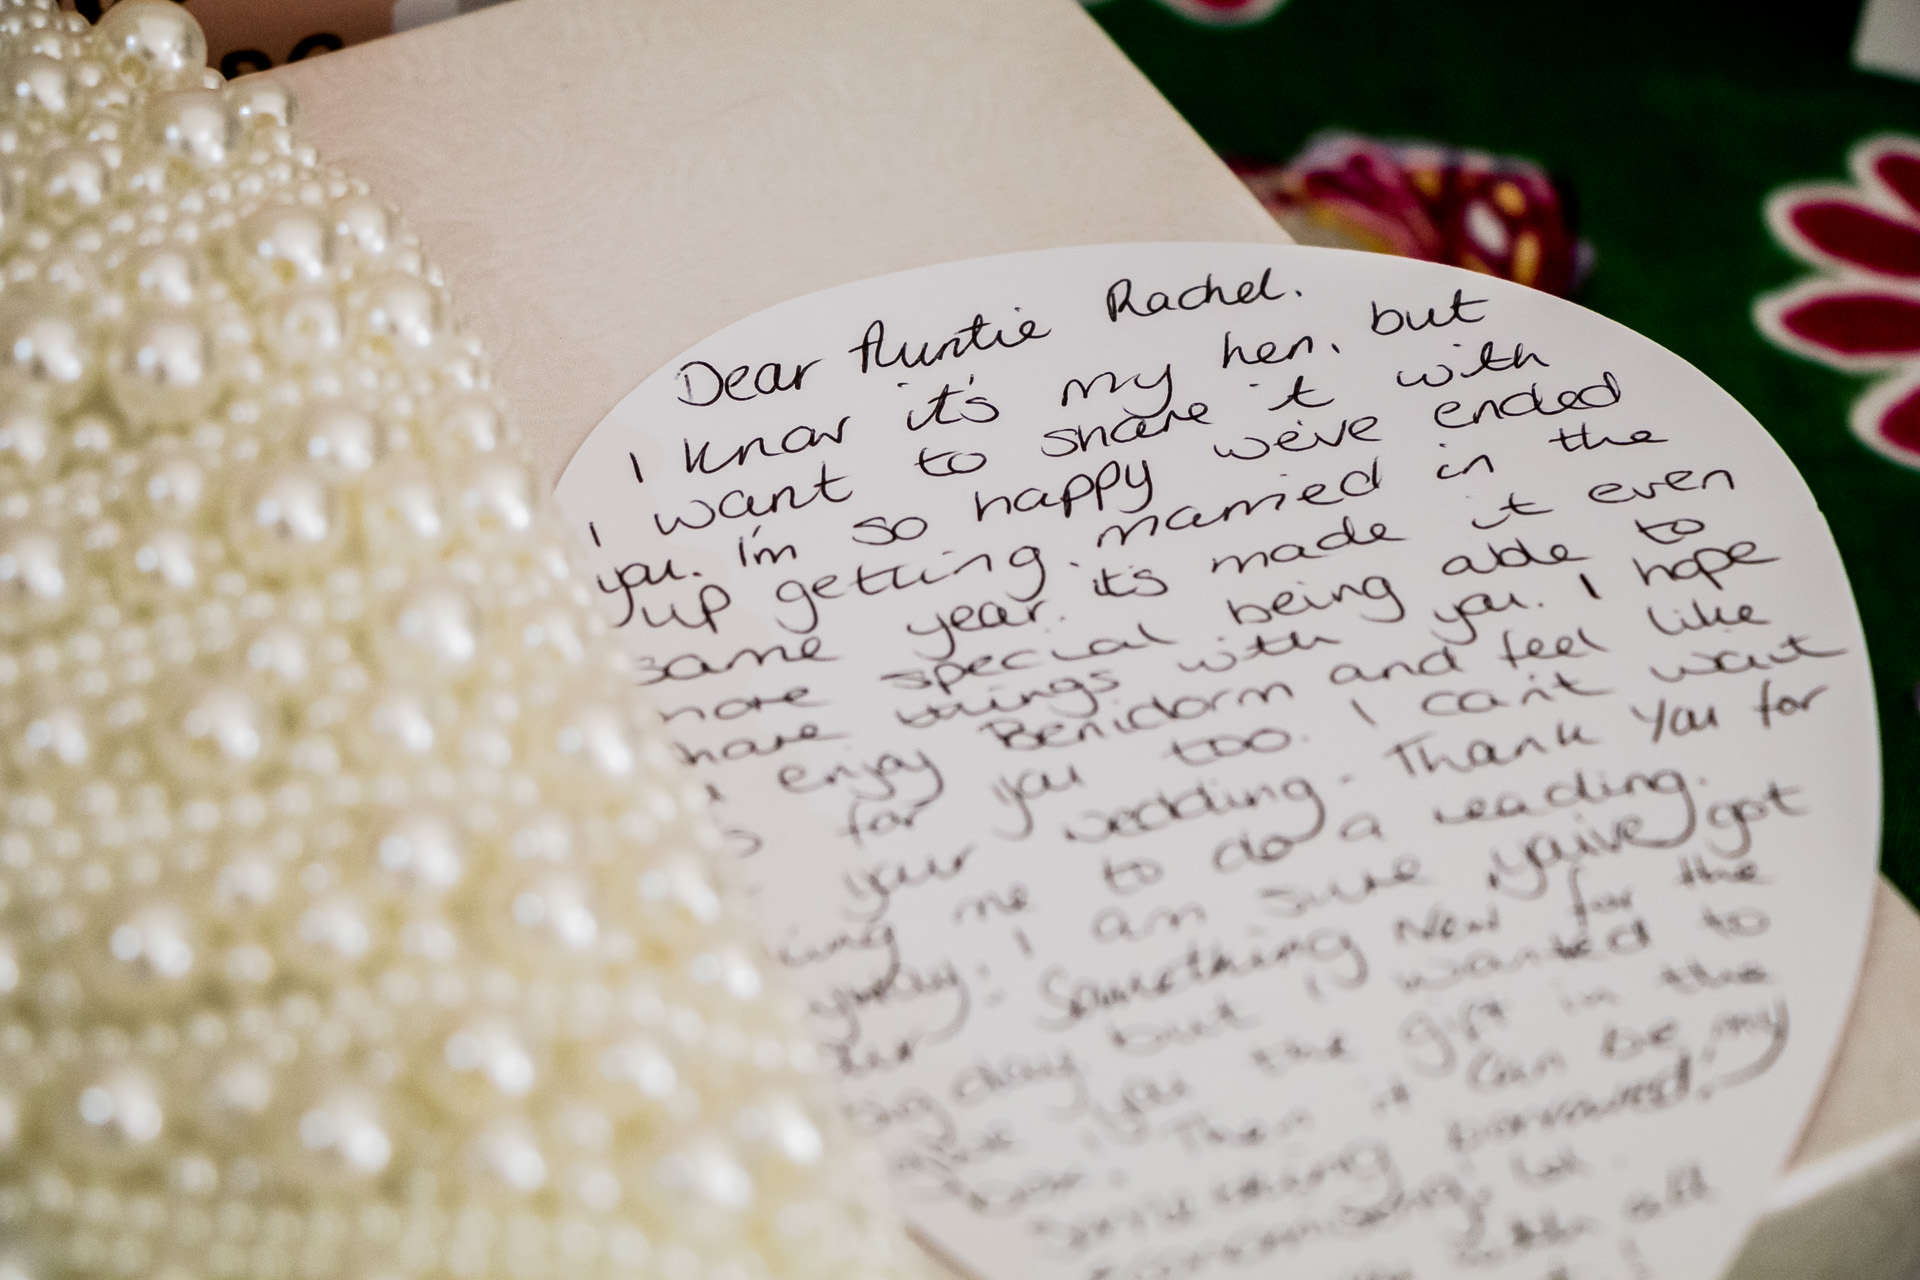 Dear Auntie Rachel.
I know it's my hen, but
I want to share it with
you. I'm so happy we've ended
up getting married in the
same year. it's made it even
more special being able to
share things with you. I hope
enjoy Benidorm and feel like
for you too. I can't wait
your wedding. Thank you for
me to do a reading.
I am sure you've got
Something New for the
big day but I wanted to
you the gift in the
Then it can be my
something borrowed,